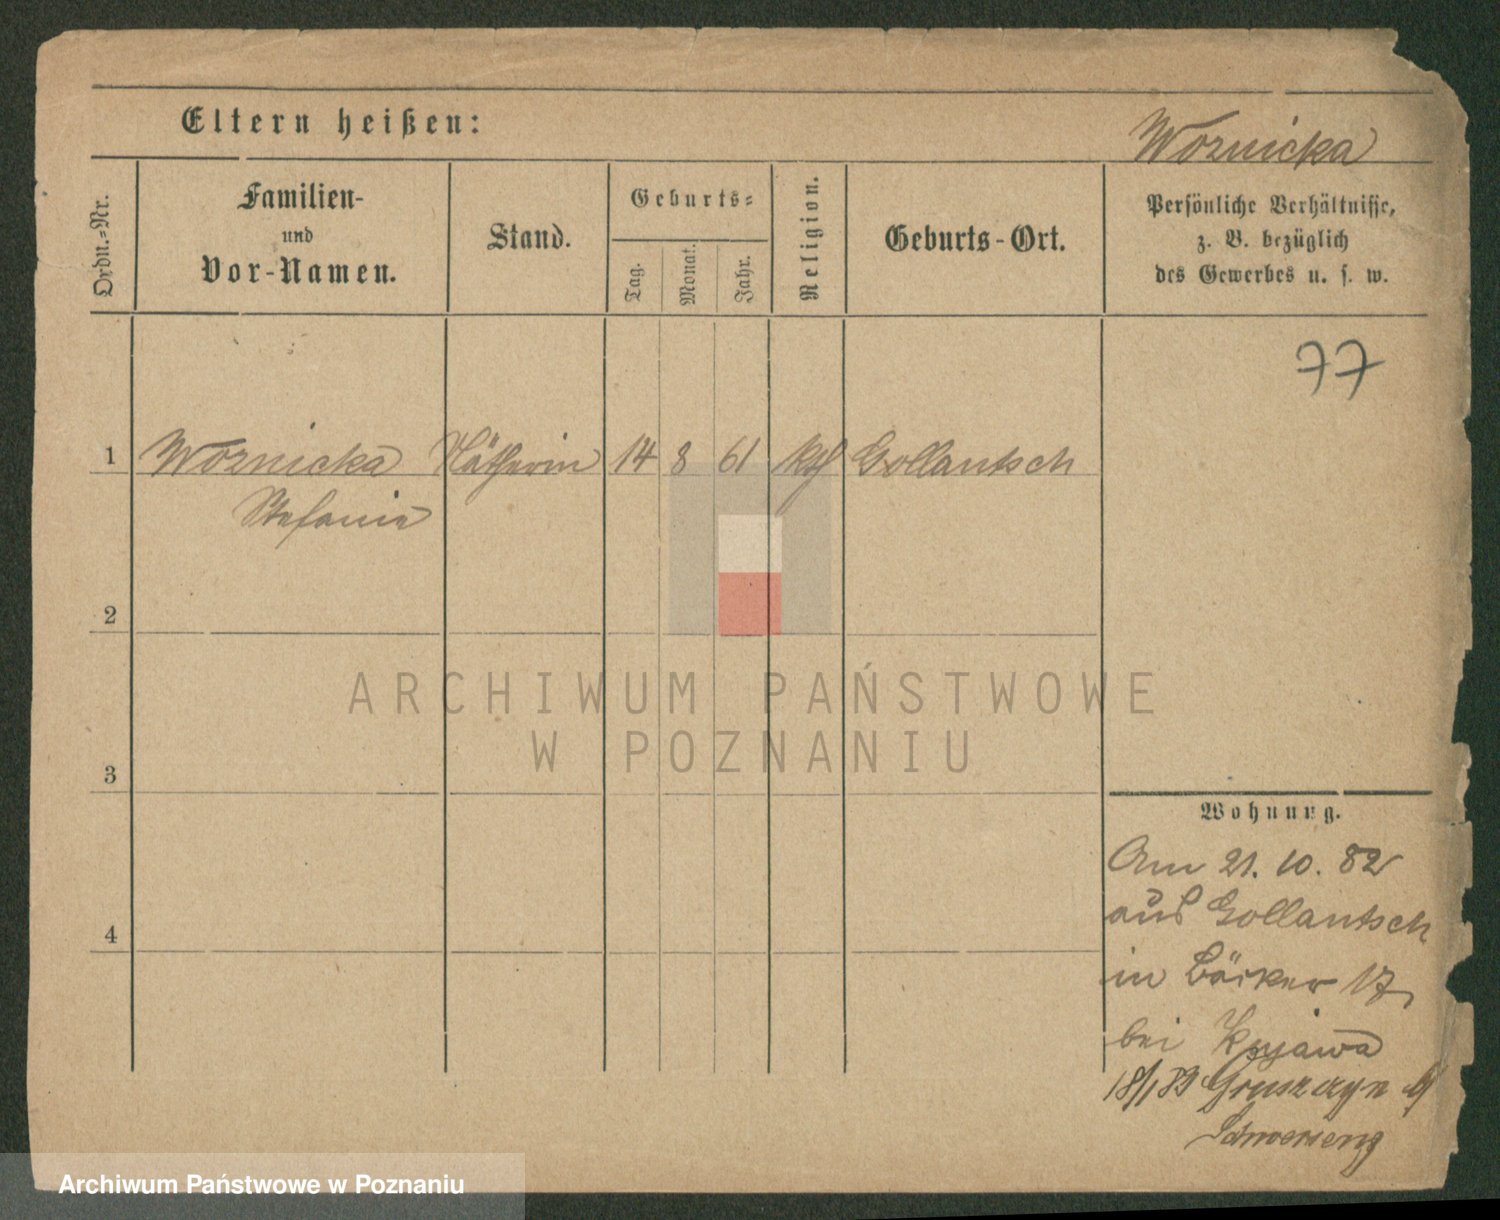 Eltern heißen:
Woznicka
Ordn.=Nr.
Familien-
und
Vor-Namen.
Stand.
Geburts=
Tag.
Monat.
Jahr.
Religion.
Geburts-Ort.
Persönliche Verhältnisse,
z. B. bezüglich
des Gewerbes u. s. w.
77
1 Woznicka Nätherin 14 8 61 kth Gollantsch
Stefanie
2
ARCHIWUM PAŃSTWOWE
W POZNANIU
3
Wohnung.
Am 21. 10. 82
aus Gollantsch
in Bäcker 17
bei Kujawa
18/1 83 Gruszczyn b/
Schwersenz
4
Archiwum Państwowe w Poznaniu